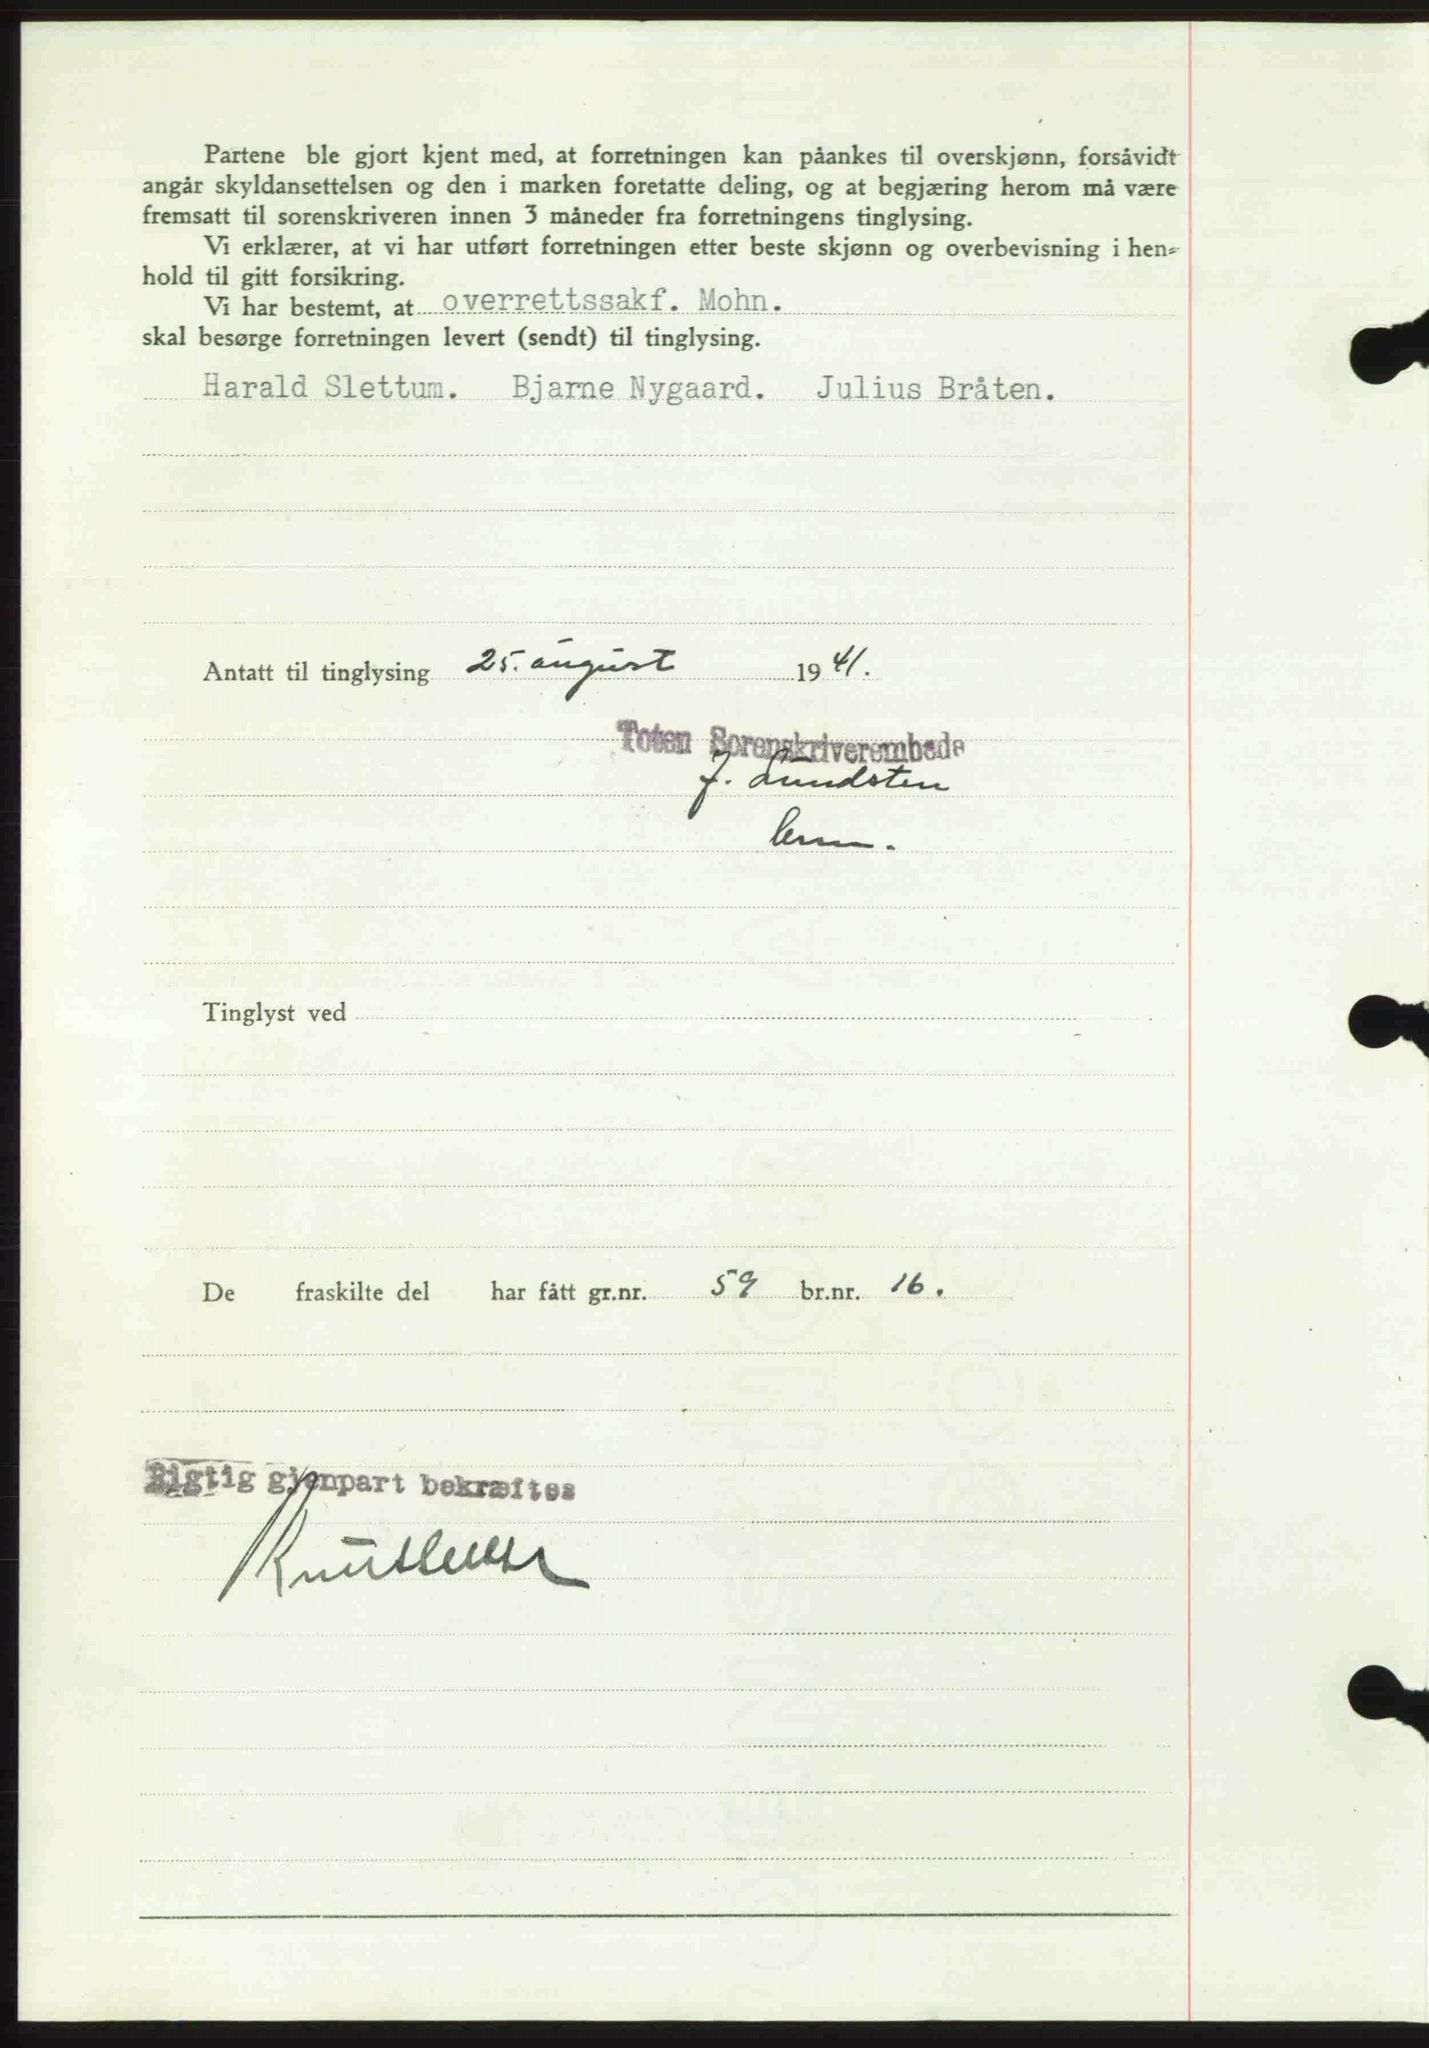 Partene ble gjort kjent med, at forretningen kan påankes til overskjønn, forsåvidt
angår skyldansettelsen og den i marken foretatte deling, og at begjæring herom må være
fremsatt til sorenskriveren innen 3 måneder fra forretningens tinglysing.
Vi erklærer, at vi har utført forretningen etter beste skjønn og overbevisning i hen-
hold til gitt forsikring.
Vi har bestemt, at overrettssakf. Mohn.
skal besørge forretningen levert (sendt) til tinglysing.
Harald Slettum. Bjarne Nygaard. Julius Bråten.
Antatt til tinglysing 25. august 1941.
Toten Sorenskriverembede
J. Lundsten
Tinglyst ved
De fraskilte del har fått gr.nr. 59 br.nr. 16.
Rigtig gjenpart bekræftes